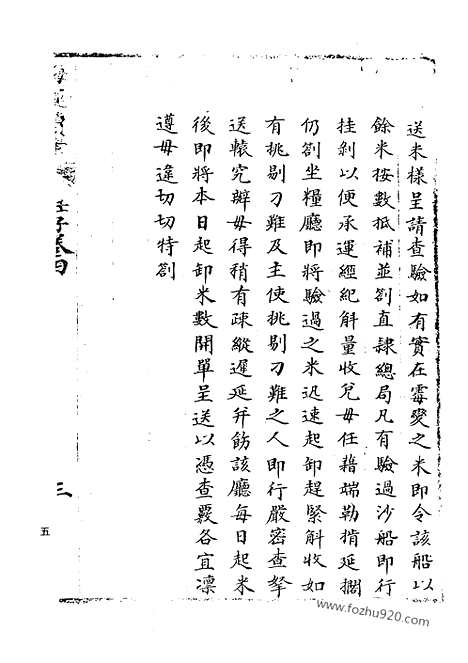 送米樣呈請查驗如有實在霉變之米即令該船以
餘米按數抵補並劄直隸總局凡有驗過沙船即行
挂剝以便承運經紀斛量收兌毋任藉端勒掯延擱
仍劄坐糧廳即將驗過之米迅速起卸趕緊斛收如
有挑剔刁難及主使挑剔刁難之人即行嚴密查拏
送轅究辦毋得稍有疎縱遲延并飭該廳每日起米
後即將本日起卸米數開單呈送以憑查覈各宜凜
遵毋違切切特劄
壬子卷四
三
五
www.fozhu920.com